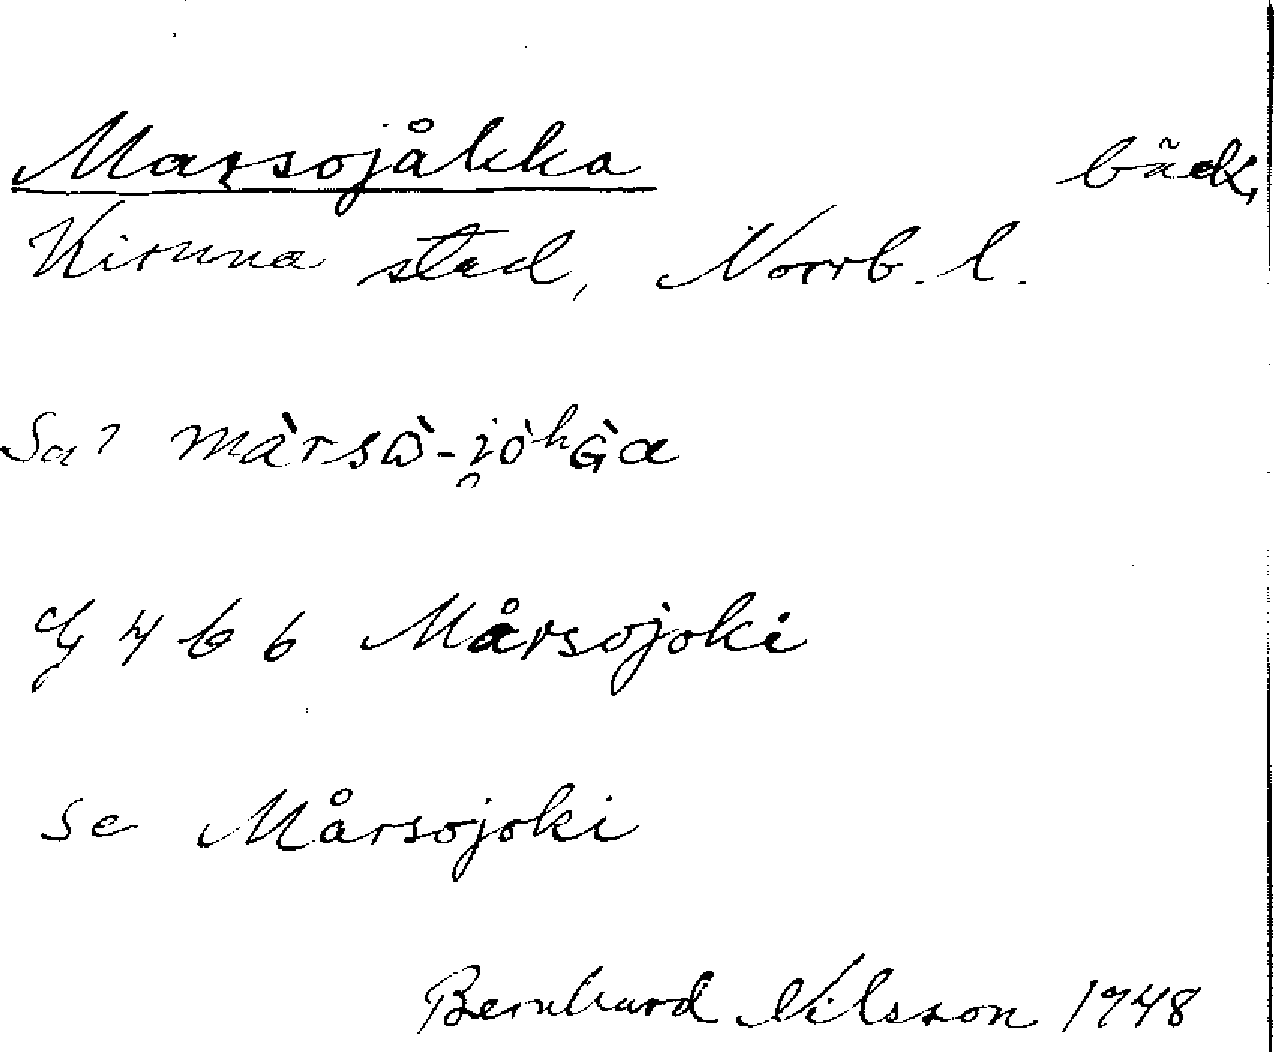 Marsojåkka bäck,
Kiruna stad, Norrb. l.
Sa? màrsɷ̀-jò̯ʰɢ̀a
G 4 6 6 Mårsojoki
se Mårsojoki
Bernhard Nilsson 1948